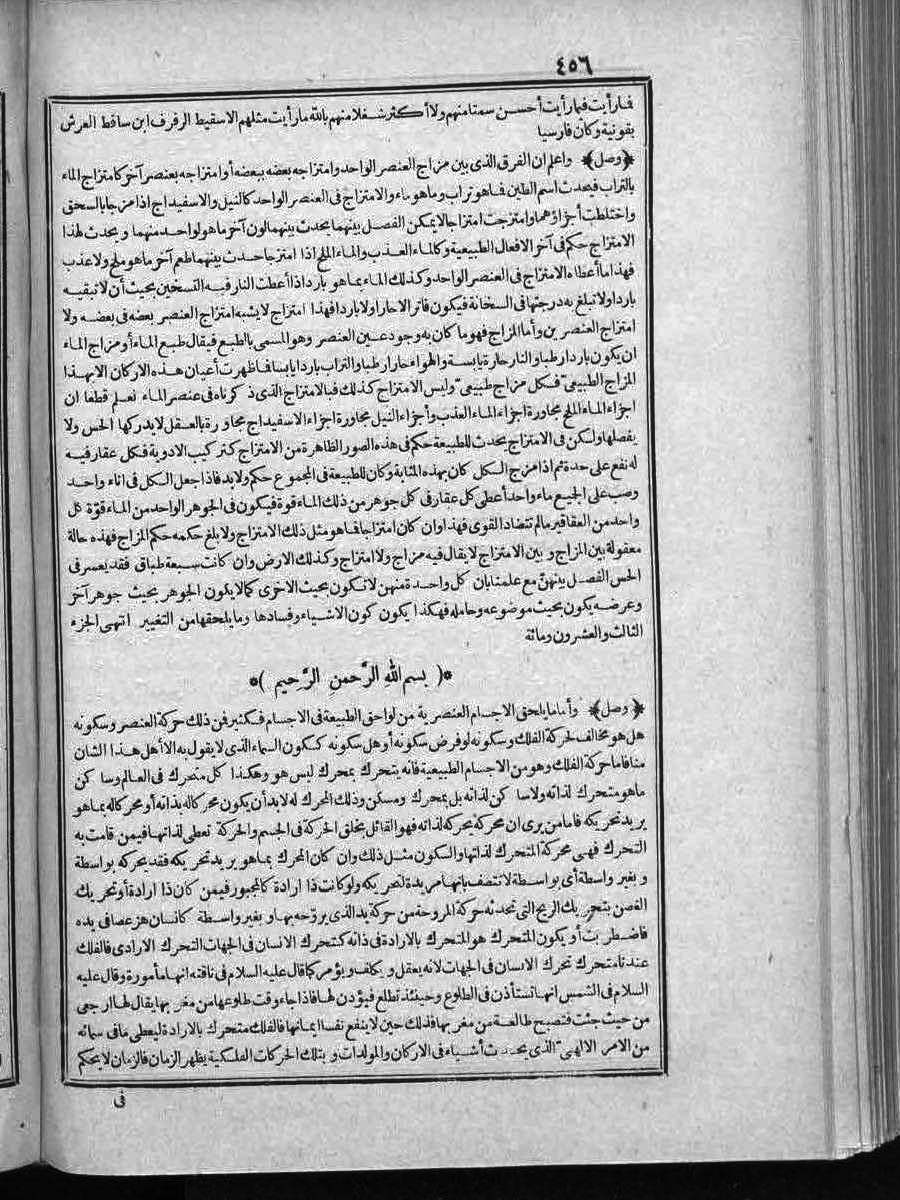 ٤٥٦
فما رأيت فيما رأيت أحسن سمتا منهم ولا أكثر شغلا منهم بالله ما رأيت مثلهم الا سقيط الرفرف ابن ساقط العرش
بقونية وكان فارسيا
﴿وصل﴾ واعلم ان الفرق الذى بين مزاج العنصر الواحد وامتزاجه بعضه ببعضه أو امتزاجه بعنصر آخر كامتزاج الماء
بالتراب فيحدث اسم الطين فما هو تراب وما هو ماء والامتزاج فى العنصر الواحد كالنيل والاسفيداج اذا مزجا بالسحق
واختلطت أجزاؤهما وامتزجت امتزاجا لا يمكن الفصل بينهما يحدث بينهما لون آخر ما هو لواحد منهما ويحدث لهذا
الامتزاج حكم فى آخر الافعال الطبيعية وكالماء العذب والماء الملح اذا امتزجا حدث بينهما طعم آخر ما هو ملح ولا عذب
فهذا ما أعطاه الامتزاج فى العنصر الواحد وكذلك الماء بما هو بارد اذا أعطت النار فيه التسخين بحيث أن لا تبقيه
باردا ولا تبلغ به درجتها فى السخانة فيكون فاترا لا حارا ولا باردا فهذا امتزاج لا يشبه امتزاج العنصر بعضه فى بعضه ولا
امتزاج العنصرين وأما المزاج فهو ما كان به وجود عين العنصر وهو المسمى بالطبع فيقال طبع الماء أو مزاج الماء
ان يكون باردا رطبا والنار حارة يابسة والهواء حارا رطبا والتراب باردا يابسا فما ظهرت أعيان هذه الاركان الا بهذا
المزاج الطبيعىّ فكل مزاج طبيعىّ وليس الامتزاج كذلك فبالامتزاج الذى ذكرناه فى عنصر الماء نعلم قطعا ان
اجزاء الماء الملح مجاورة اجزاء الماء العذب وأجزاء النيل مجاورة اجزاء الاسفيداج مجاورة بالعقل لا يدركها الحس ولا
يفصلها ولكن فى الامتزاج يحدث للطبيعة حكم فى هذه الصور الظاهرة من الامتزاج كتركيب الادوية فكل عقار فيه
له نفع على حدة ثم اذا مزج الكل كان بهذه المثابة وكان للطبيعة فى المجموع حكم ولا بد فاذا جعل الكل فى اناء واحد
وصب على الجميع ماء واحد أعطى كل عقار فى كل جوهر من ذلك الماء قوة فيكون فى الجوهر الواحد من الماء قوّة كل
واحد من العقاقير ما لم تتضاد القوى فهذا وان كان امتزاجا فما هو مثل ذلك الامتزاج ولا بلغ حكمه حكم المزاج فهذه حالة
معقولة بين المزاج وبين الامتزاج لا يقال فيه مزاج ولا امتزاج وكذلك الارض وان كانت سبعة طباق فقد يعسر فى
الحس الفصل بينهنّ مع علمنا بان كل واحدة منهن لا تكون بحيث الاخرى كما لا يكون الجوهر بحيث جوهر آخر
وعرضه يكون بحيث موضوعه وحامله فهكذا يكون كون الاشياء وفسادها وما يلحقها من التغيير انتهى الجزء
الثالث والعشرون ومائة
*( بسم الله الرَّحمنِ الرَّحِيم )*
﴿وصل﴾ وأما ما يلحق الاجسام العنصرية من لواحق الطبيعة فى الاجسام فكثير فمن ذلك حركة العنصر وسكونه
هل هو مخالف لحركة الفلك وسكونه لو فرض سكونه أو هل سكونه كسكون السماء الذى لا يقول به الا أهل هذا الشان
منا فاما حركة الفلك وهو من الاجسام الطبيعية فانه يتحرك بمحرك ليس هو وهكذا كل متحرك فى العالم وساكن
ما هو متحرك لذاته ولا ساكن لذاته بل بمحرك ومسكن وذلك المحرك له لا بد أن يكون محركا له بذاته أو محركا له بما هو
يريد تحريكه فاما من يرى ان محركه يحركه لذاته فهو القائل بخلق الحركة فى الجسم والحركة تعطى لذاتها فيمن قامت به
التحرك فهى محركة المتحرك لذاتها والسكون مثل ذلك وان كان المحرك بما هو يريد تحريكه فقد يحركه بواسطة
وبغير واسطة أى بواسطة لا تتصف بانها مريدة لتحريكه ولو كانت ذا ارادة كالمجبور فيمن كان ذا ارادة أو تحريك
الغصن بتحريك الريح التى تحدثه حركة المروحة من حركة يد الذى يروّحه بها وبغير واسطة كانسان هز عصا فى يده
فاضطربت أو يكون المتحرك هو المتحرك بالارادة فى ذاته كتحرك الانسان فى الجهات التحرك الارادى فالفلك
عندنا متحرك تحرك الانسان فى الجهات لانه يعقل ويكلف ويؤمر كما قال عليه السلام فى ناقته انها مأمورة وقال عليه
السلام فى الشمس انها تستأذن فى الطلوع وحينئذ تطلع فيؤذن لها فاذا جاء وقت طلوعها من مغربها يقال لها ارجعى
من حيث جئت فتصبح طالعة من مغربها فذلك حين لا ينفع نفسا ايمانها فالفلك متحرك بالارادة ليعطى ما فى سمائه
من الامر الالهىّ الذى يحدث أشياء فى الاركان والمولدات وبتلك الحركات الفلكية يظهر الزمان فالزمان لا يحكم
فى